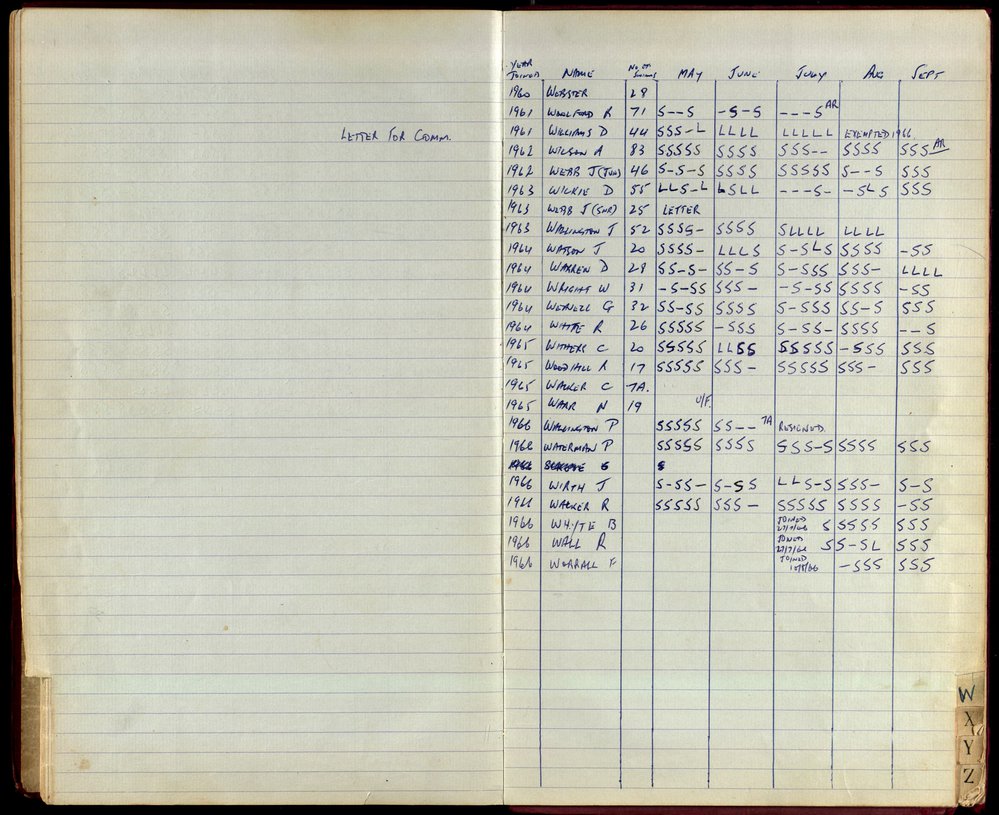 YEAR JOINED NAME No. OF SWIMS MAY JUNE JULY AUG SEPT
1960 WEBSTER 28
1961 WOOLFORD R 71 S--S -S-S ---S AR
LETTER FOR COMM. 1961 WILLIAMS D 44 SSS-L LLLL LLLLL EXEMPTED 1966.
1962 WILSON A 83 SSSSS SSSS SSS-- SSSS SSS AR
1962 WEBB J (JUN) 46 S-S-S SSSS SSSSS S--S SSS
1963 WILKIE D 55 LLS-L LSLL ---S- -SLS SSS
1963 WEBB J (SNR) 25 LETTER
1963 WALLINGTON J 52 SSSS- SSSS SLLLL LLLL
1964 WATSON J 20 SSSS- LLLS S-SLS SSSS -SS
1964 WARREN D 28 SS-S- SS-S S-SSS SSS- LLLL
1964 WRIGHT W 31 -S-SS SSS- -S-SS SSSS -SS
1964 G 32 SS-SS SSSS S-SSS SS-S SSS
1964 WHITE R 26 SSSSS -SSS S-SS- SSSS --S
1965 WITHERS C 20 SSSSS LLSS SSSSS -SSS SSS
1965 WOODHALL R 17 SSSSS SSS- SSSSS SSS- SSS
1965 WALKER C 7A.
1965 WARR N 19 U/F.
1966 WALLINGTON P SSSSS SS-- 7A RESIGNED.
1966 WATERMAN P SSSSS SSSS SSS-S SSSS SSS
1966 G S
1966 WIRTH J S-SS- S-SS LLS-S SSS- S-S
1966 WALKER R SSSSS SSS- SSSSS SSSS -SS
1966 WHYTE B JOINED 27/7/66 S SSSS SSS
1966 WALL R JOINED 27/7/66 S S-SL SSS
1966 WORRALL F JOINED 10/8/66 -SSS SSS
W
X
Y
Z